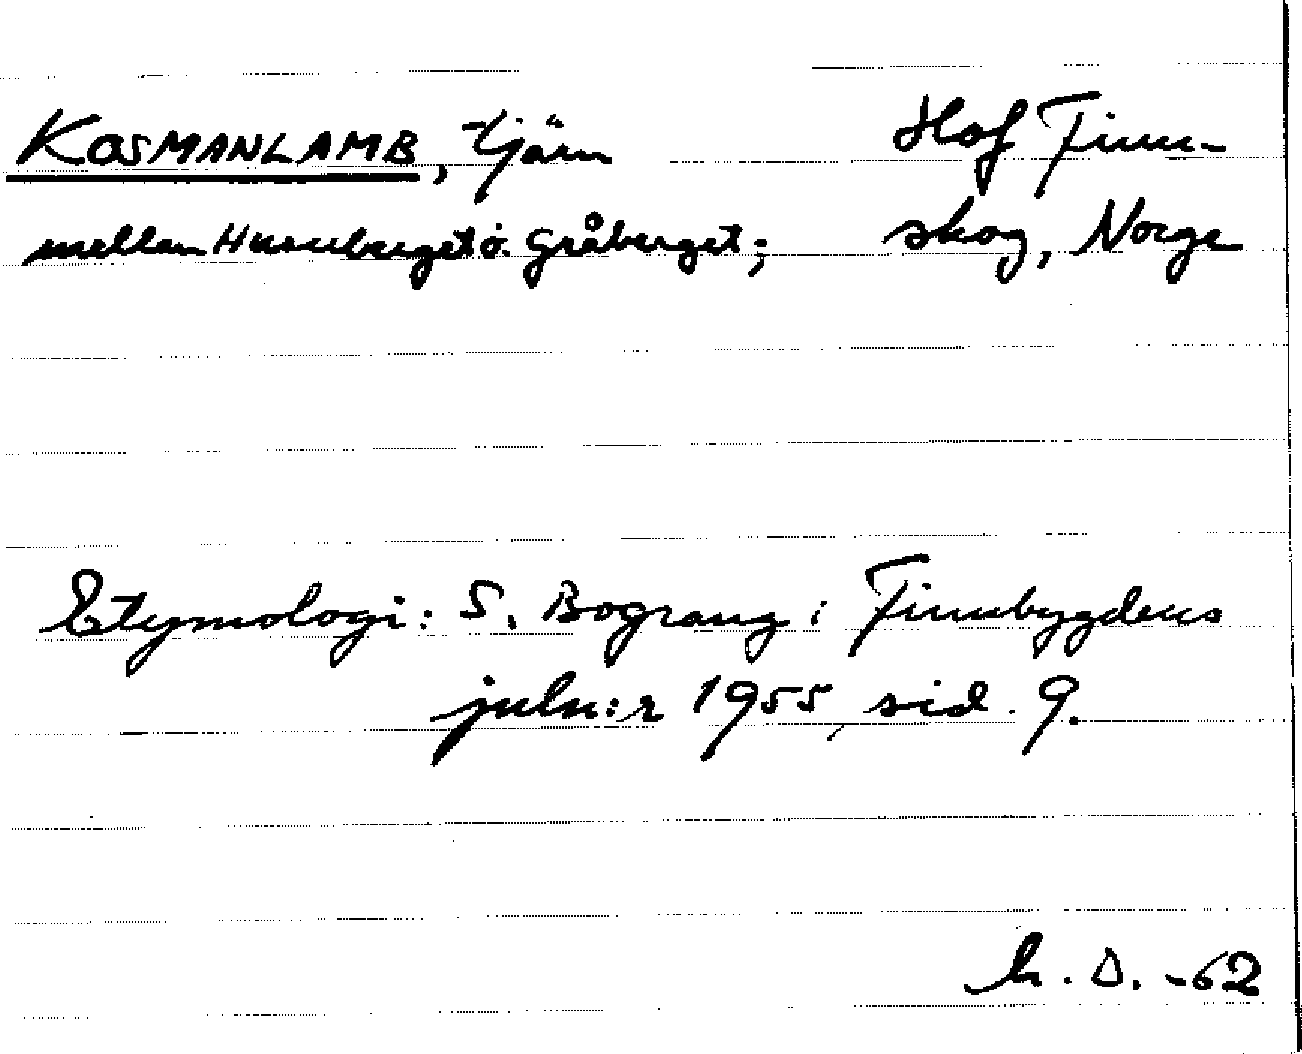 KOSMANLAMB, tjärn
Hof Finn-
mellan Huruberget o. Gråberget;
skog, Norge
Etymologi: S. Bograng i Finnbygdens
julnr 1955, sid. 9.
h. D. -62